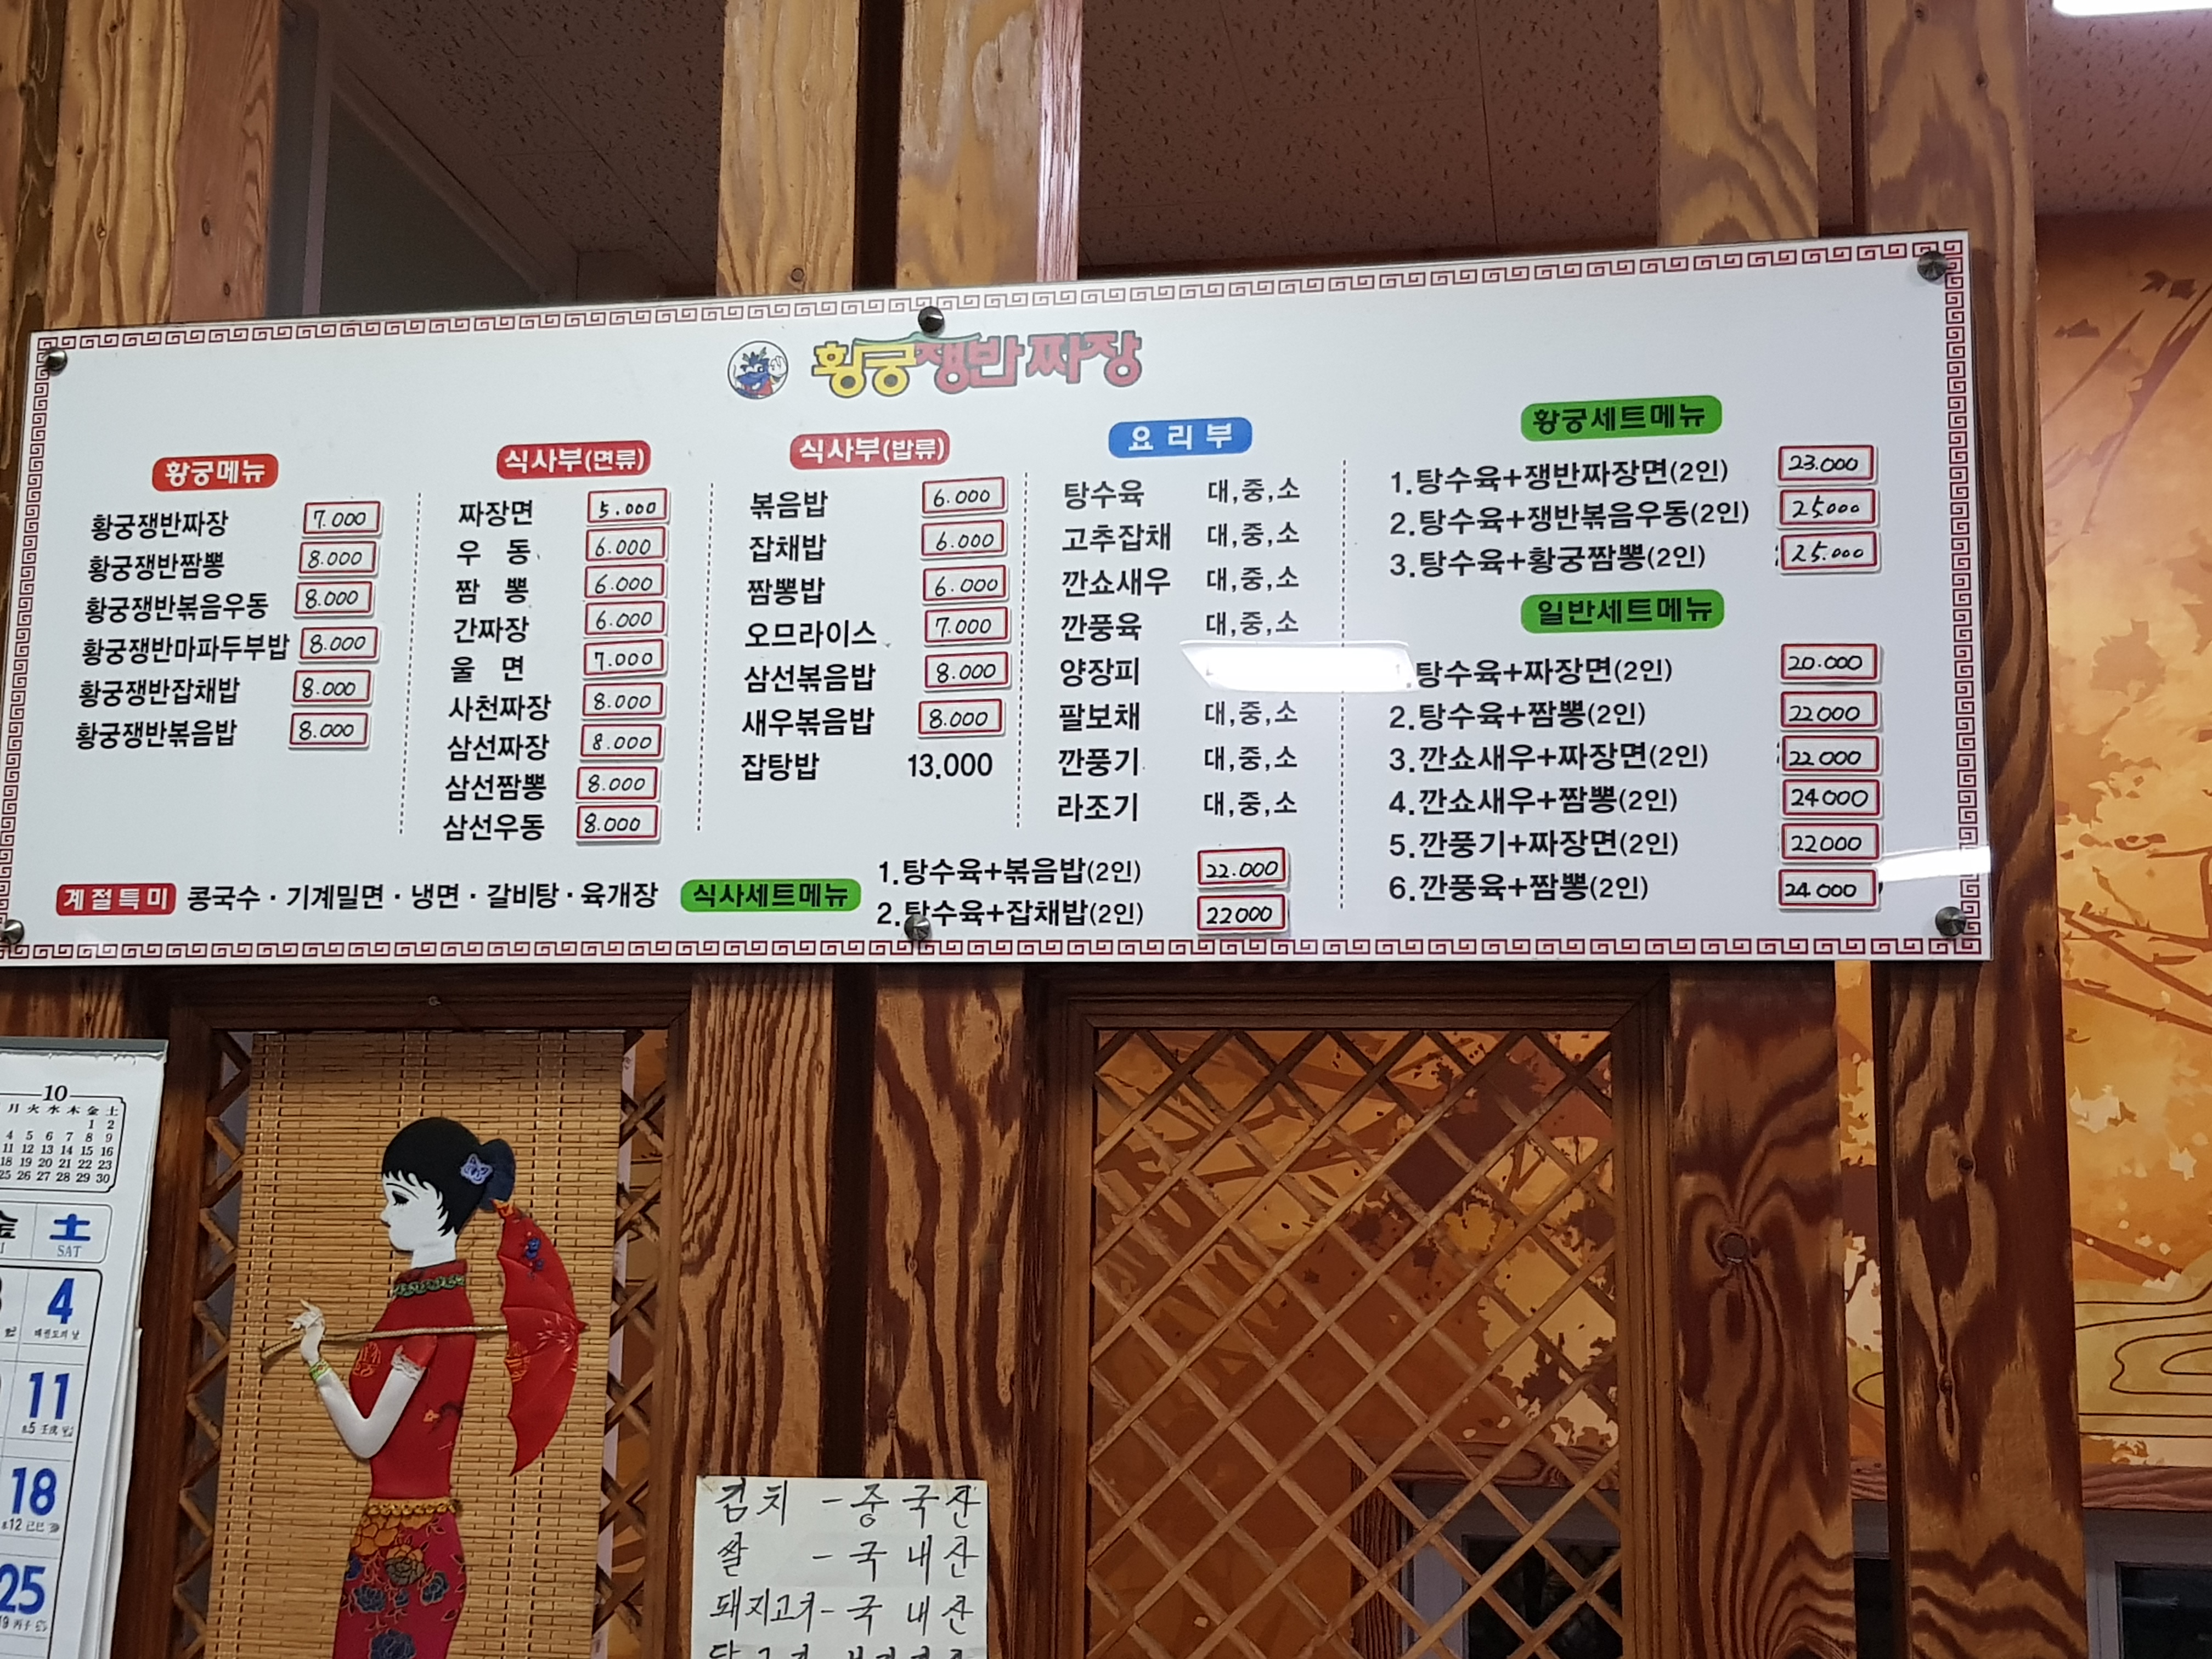 황궁쟁반짜장
황궁메뉴
황궁쟁반짜장 7.000
황궁쟁반짬뽕 8.000
황궁쟁반볶음우동 8.000
황궁쟁반마파두부밥 8.000
황궁쟁반잡채밥 8.000
황궁쟁반볶음밥 8.000
식사부(면류)
짜장면 5.000
우 동 6.000
짬 뽕 6.000
간짜장 6.000
울 면 7.000
사천짜장 8.000
삼선짜장 8.000
삼선짬뽕 8.000
삼선우동 8.000
식사부(밥류)
볶음밥 6.000
잡채밥 6.000
짬뽕밥 6.000
오므라이스 7.000
삼선볶음밥 8.000
새우볶음밥 8.000
잡탕밥 13.000
요리부
탕수육 대,중,소
고추잡채 대,중,소
깐쇼새우 대,중,소
깐풍육 대,중,소
양장피
팔보채 대,중,소
깐풍기 대,중,소
라조기 대,중,소
황궁세트메뉴
1.탕수육+쟁반짜장면(2인) 23.000
2.탕수육+쟁반볶음우동(2인) 25000
3.탕수육+황궁짬뽕(2인) 25.000
일반세트메뉴
탕수육+짜장면(2인) 20.000
2.탕수육+짬뽕(2인) 22000
3.깐쇼새우+짜장면(2인) 22000
4.깐쇼새우+짬뽕(2인) 24000
5.깐풍기+짜장면(2인) 22000
6.깐풍육+짬뽕(2인) 24000
계절특미 콩국수 · 기계밀면 · 냉면 · 갈비탕 · 육개장
식사세트메뉴
1.탕수육+볶음밥(2인) 22.000
2.탕수육+잡채밥(2인) 22000
10
月 火 水 木 金 土
1 2
4 5 6 7 8 9
11 12 13 14 15 16
18 19 20 21 22 23
25 26 27 28 29 30
金 土
SAT
4
11
18
25
김치 - 중국산
쌀 - 국내산
돼지고기 - 국내산